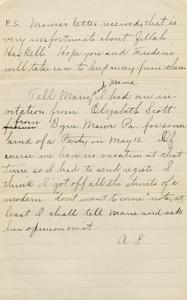 P.S. Mama's letter received; that is
very unfortunate about Lillah
Haskell. Hope you and Frederic
will take care to keep away from
Mama
Tell Mary I had an in-
vitation from Elizabeth Scott
from Bryn Mawr Pa. for some
kind of a Party on May 13. Of
course we have no vacation at that
time so I had to send regrets. I
think I got off all the struts of a
modern "don't want to come" note, at
least I shall tell Mama and ask
her opinion on it.
A. L.